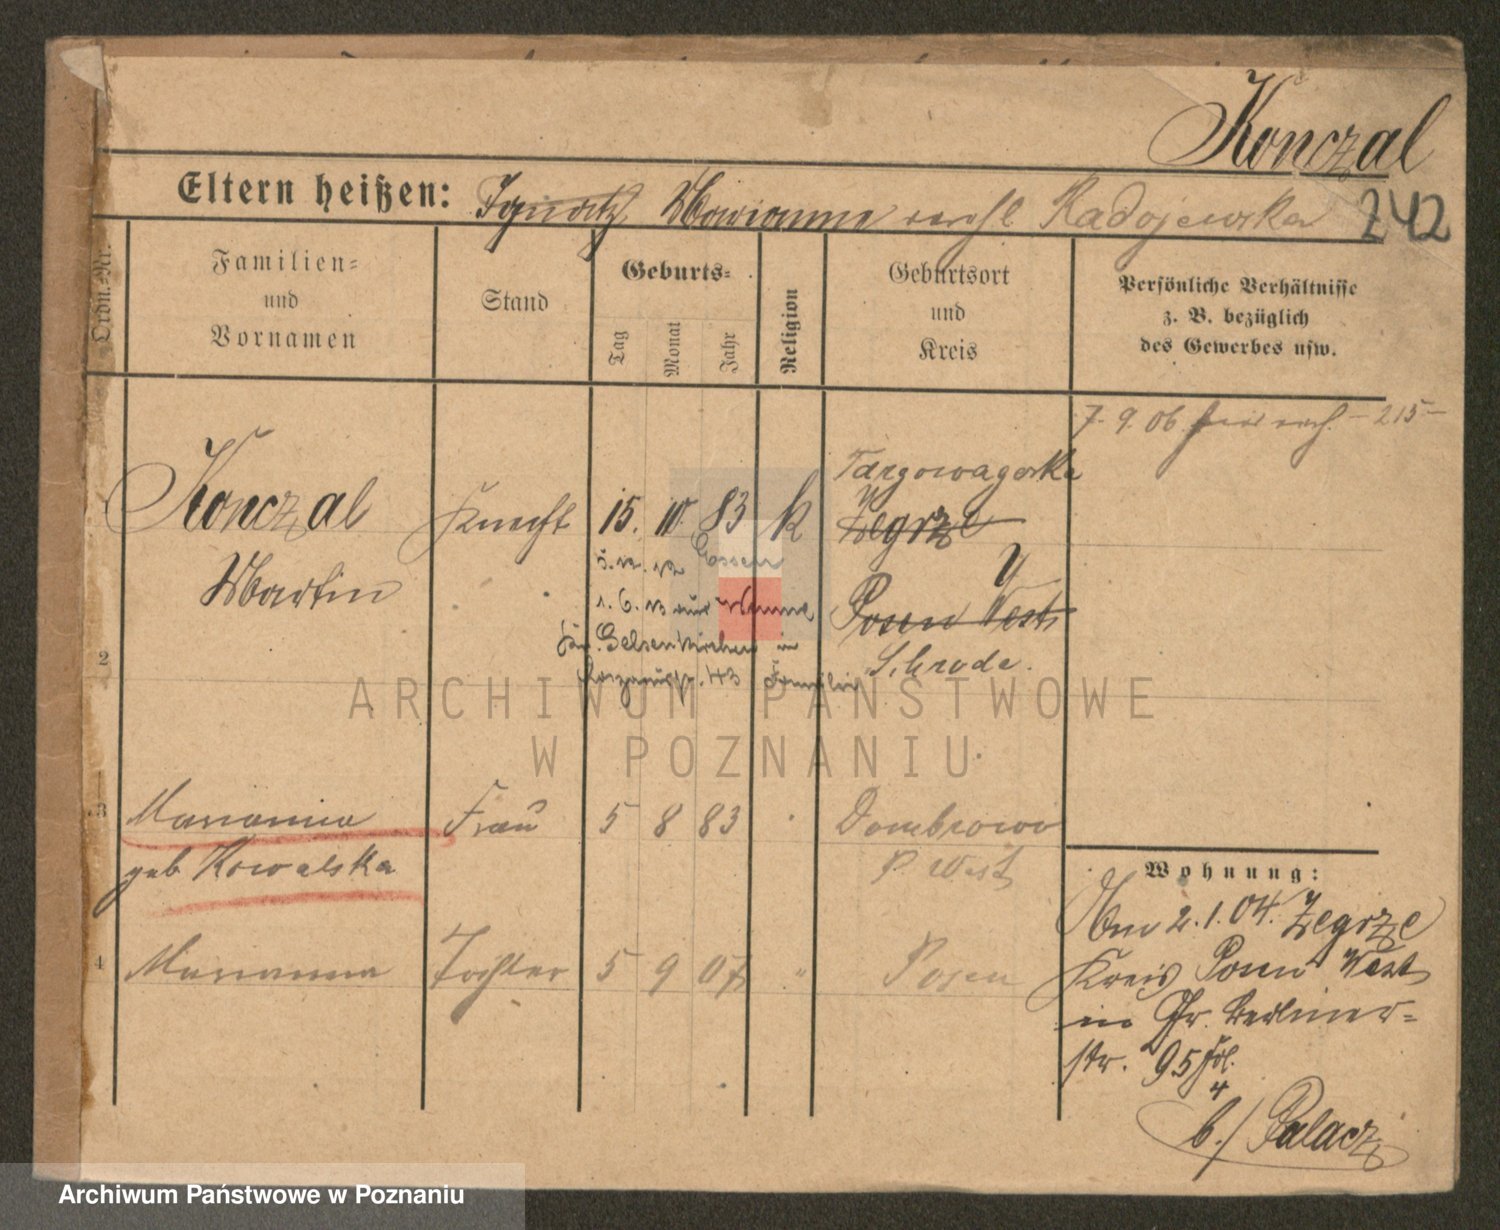 Konczal
Eltern heißen: Ignatz Marianne Radojewska 242
Ordn.-Nr.
Familien-
und
Vornamen
Stand
Geburts-
Tag
Monat
Jahr
Religion
Geburtsort
und
Kreis
Persönliche Verhältnisse
z. B. bezüglich
des Gewerbes usw.
7. 9. 06 - 215 -
Konczal Knecht 15. 10. 83 k Targowagorka
Zegrze
Martin
5. 12. 12 Essen
1. 6. 13 aus
Posen West
Gelsenkirchen in
43 Familie
Schroda.
2
3 Marianna Frau 5 8 83 Dombrowo
geb Kowalska P West
4 Marianna Tochter 5 9 07 " Posen
Wohnung:
Am 2. 1. 04. Zegrze
Kreis Posen West
in Gr. Berliner-
str. 95
4
b./ Palacz
ARCHIWUM PAŃSTWOWE
W POZNANIU
Archiwum Państwowe w Poznaniu